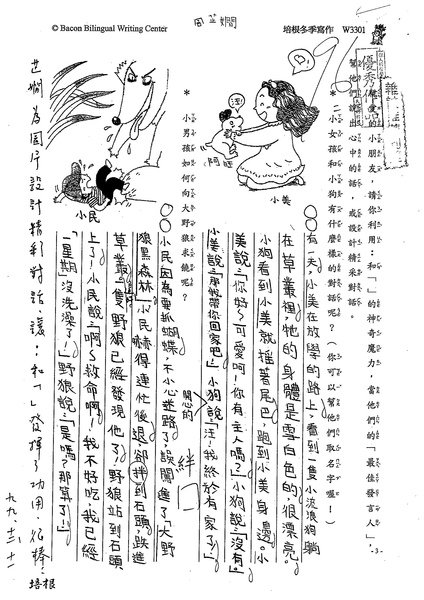 © Bacon Bilingual Writing Center
周芷嫻
培根冬季寫作 W3301
優秀
小朋友,請你利用:和「」的神奇魔力,當他們的「最佳發言人」,
幫他們說出心中的話,或設計精采對話。
* 二、小女孩和小狗有什麼樣的對話呢?(你可以幫他們取名字喔!)
汪
阿旺
小美
有一天,小美在放學的路上,看到一隻小流浪狗躺
在草叢裡,牠的身體是雪白色的,很漂亮。
小狗看到小美就搖著尾巴,跑到小美身邊。小
美說:「你好~可愛呵!你有主人嗎?」小狗說:「沒有。」
小美說:「那我帶你回家吧!」小狗說:「汪!我終於有家了!」
開心的
* 小男孩如何向大野狼求饒呢?
小民
小民因為要抓蝴蝶,不小心迷路了,誤闖進了「大野
狼黑森林」,小民嚇得連忙後退,卻絆到石頭,跌進
草叢,一隻野狼已經發現他了,野狼站到石頭
上了!小民說:「啊~救命啊!我不好吃,我已經
一星期沒洗澡了!」野狼說:「是嗎?那算了!」
絆
芷嫻為圖片設計精彩對話,讓:和「」發揮了功用,很棒!
九九、十二、十一
培根
-3-